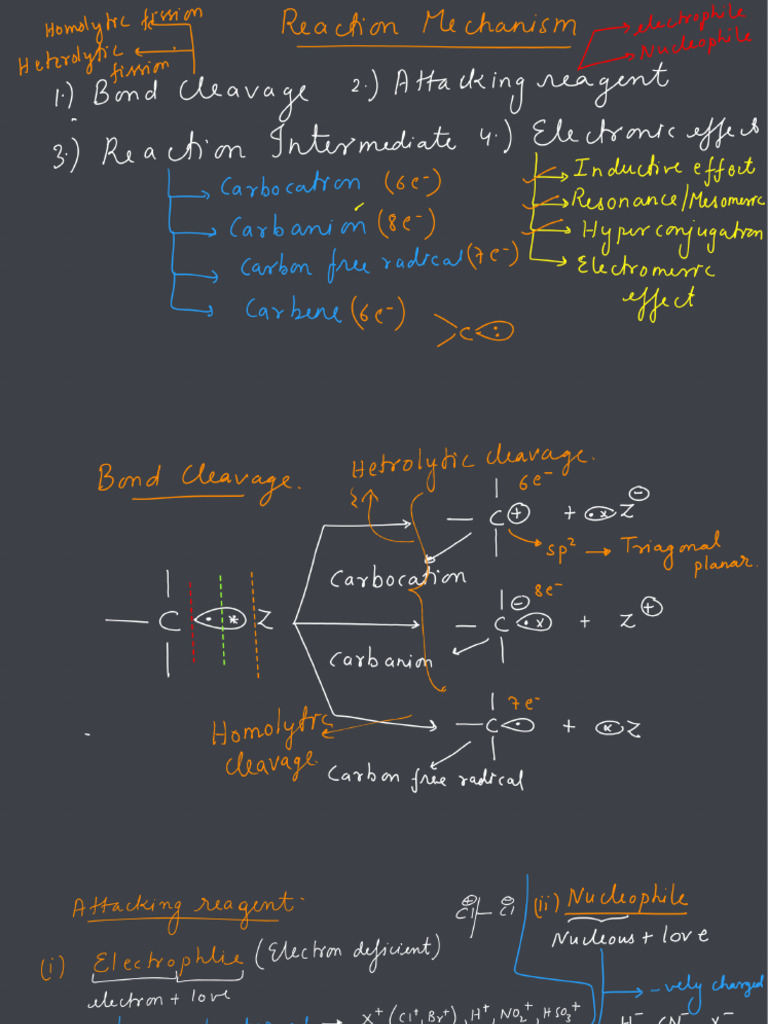 Homolytic fission
Reaction Mechanism
electrophile
Nucleophile
Heterolytic
fission
1.) Bond Cleavage 2.) Attacking reagent
3.) Reaction Intermediate 4.) Electronic effect
Carbocation (6e⁻)
Carbanion (8e⁻)
Carbon free radical (7e⁻)
Carbene (6e⁻)
C:
Inductive effect
Resonance/Mesomeric
Hyperconjugation
Electromeric
effect
Bond Cleavage.
Hetrolytic cleavage.
6e⁻
C⊕ + •x Z⊖
sp² → Triagonal
planar.
Carbocation
C •x Z
8e⁻
C⊖ •x + Z⊕
Carbanion
7e⁻
C • + x Z
Homolytic
cleavage.
Carbon free radical
Attacking reagent.
(i) Electrophlie (Electron deficient)
electron + love
⊕Cl – ⊖Cl
(ii) Nucleophile
Nucleous + love
-vely charged
X⁺ (Cl⁺, Br⁺), H⁺, NO₂⁺, HSO₃⁺
H⁻ CN⁻ X⁻